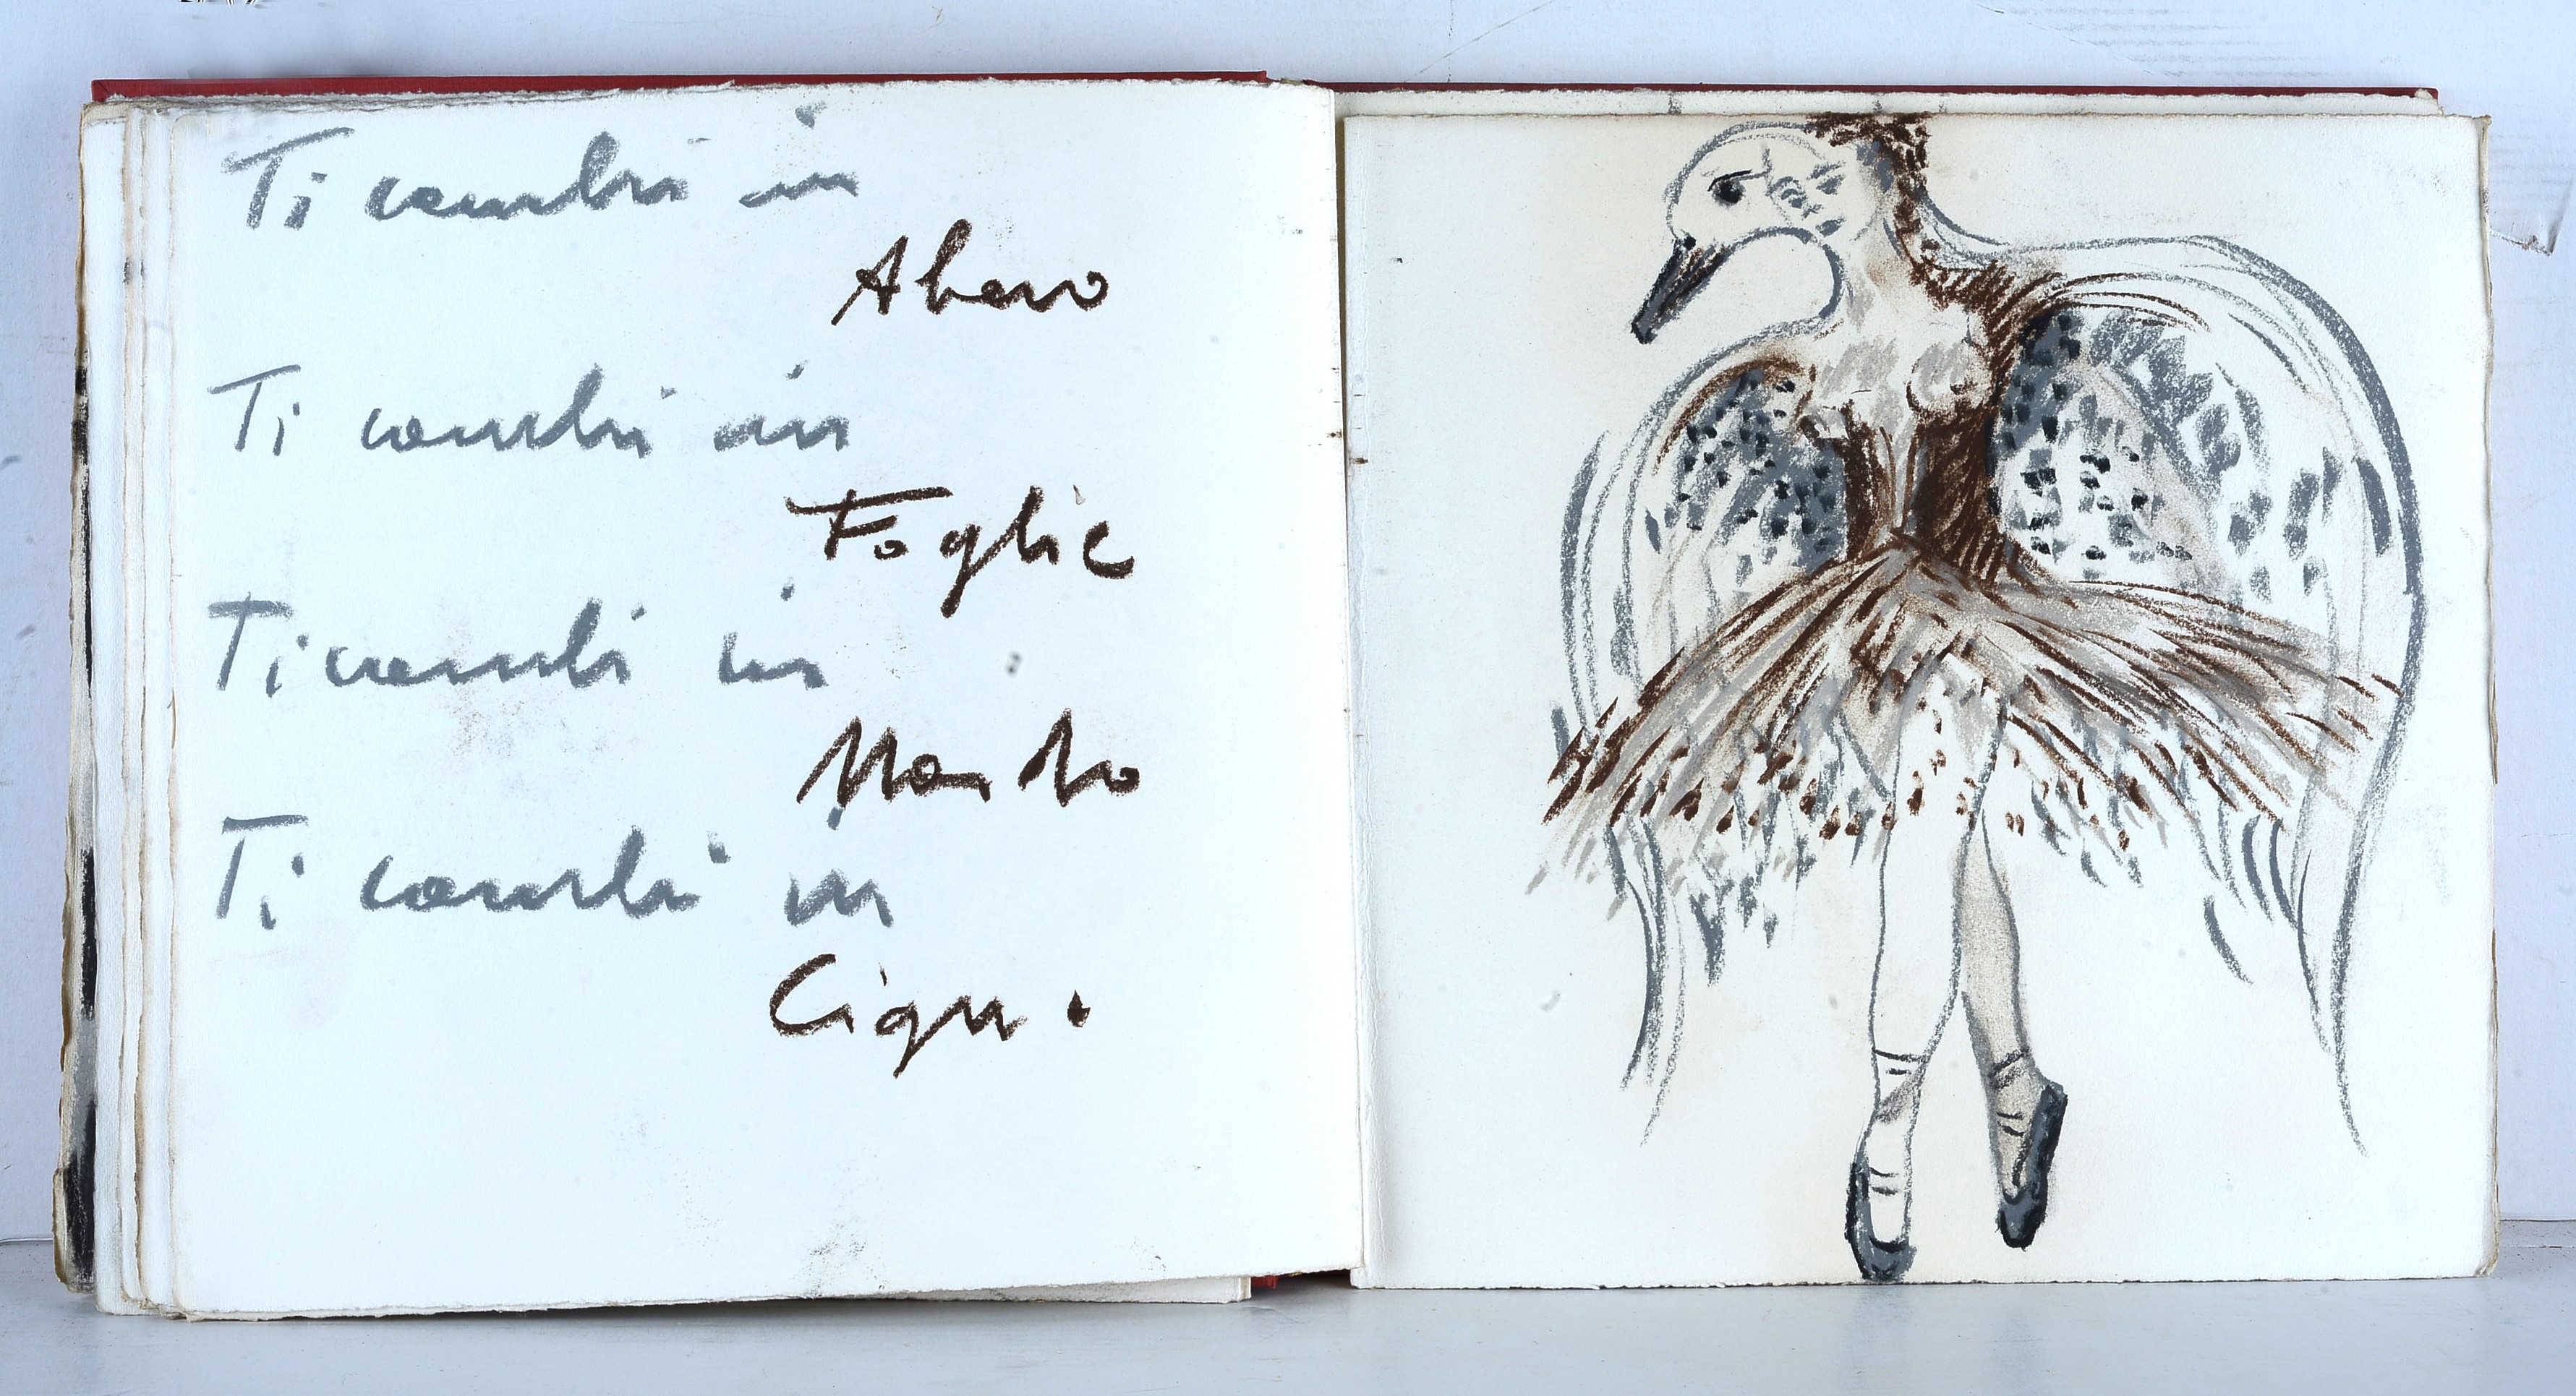 Ti cambi in
Albero
Ti cambi in
Foglie
Ti cambi in
Mondo
Ti cambi in
Cigno